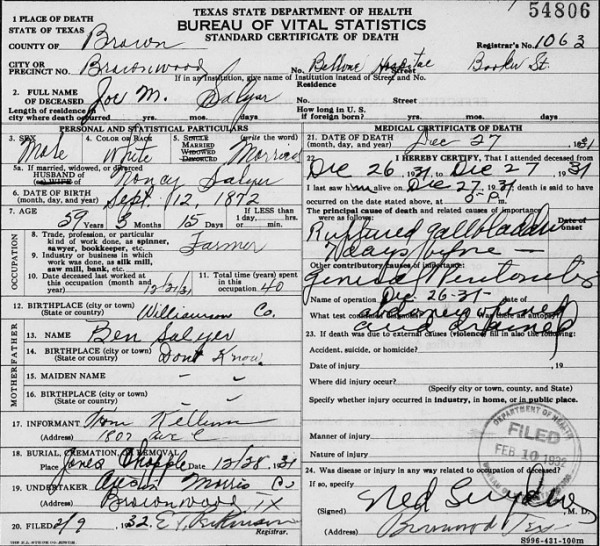 TEXAS STATE DEPARTMENT OF HEALTH
BUREAU OF VITAL STATISTICS
STANDARD CERTIFICATE OF DEATH
54806
1 PLACE OF DEATH
STATE OF TEXAS
COUNTY OF Brown
Registrar's No. 1063
CITY OR PRECINCT NO. Brownwood No. Hospital Street Booker St.
If in an institution, give name of institution instead of Street and No.
2. FULL NAME OF DECEASED Joe M. Salyer
Residence No. Street
Length of residence where death occurred yrs. mos. days
How long in U. S. if foreign born? yrs. mos. days
PERSONAL AND STATISTICAL PARTICULARS
3. SEX Male
4. COLOR OR RACE White
5. SINGLE MARRIED WIDOWED DIVORCED (write the word) Married
5a. If married, widowed, or divorced
HUSBAND of (or) WIFE of Nancy Salyer
6. DATE OF BIRTH (month, day, and year) Sept. 12 1872
7. AGE 59 Years 3 Months 15 Days If LESS than 1 day, hrs. or min.
OCCUPATION
8. Trade, profession, or particular kind of work done, as spinner, sawyer, bookkeeper, etc. Farmer
9. Industry or business in which work was done, as silk mill, saw mill, bank, etc.
10. Date deceased last worked at this occupation (month and year) 12/21/31
11. Total time (years) spent in this occupation 40
12. BIRTHPLACE (city or town) (State or country) Williamson Co.
FATHER
13. NAME Ben Salyer
14. BIRTHPLACE (city or town) (State or country) Dont Know
MOTHER
15. MAIDEN NAME - -
16. BIRTHPLACE (city or town) (State or country) - -
17. INFORMANT Tom Kellum
(Address) 1807 Ave C
18. BURIAL, CREMATION, OR REMOVAL
Place Jones Chapple Date 12/28 1931
19. UNDERTAKER Morris Co
(Address) Brownwood, TX
20. FILED 2/9, 1932
Registrar.
MEDICAL CERTIFICATE OF DEATH
21. DATE OF DEATH (month, day, and year) Dec 27 1931
22. I HEREBY CERTIFY, That I attended deceased from
Dec 26, 1931, to Dec 27, 1931
I last saw him alive on Dec 27, 1931 death is said to have
occurred on the date stated above, at 5 P.m.
The principal cause of death and related causes of importance
were as follows: Date of onset
Ruptured gallbladder
days before
Other contributory causes of importance:
General Peritonitis
Name of operation Dec 26-31 date of
What test confirmed diagnosis? Was there an autopsy?
and drained
23. If death was due to external causes (violence) fill in also the following:
Accident, suicide, or homicide?
Date of injury , 19
Where did injury occur?
(Specify city or town, county, and State)
Specify whether injury occurred in industry, in home, or in public place.
Manner of injury
Nature of injury
DEPARTMENT OF HEALTH
FILED
FEB 10 1932
24. Was disease or injury in any way related to occupation of deceased?
If so, specify
(Signed) Ned Snyder M. D.
(Address) Brownwood Tex
S996-431-100m